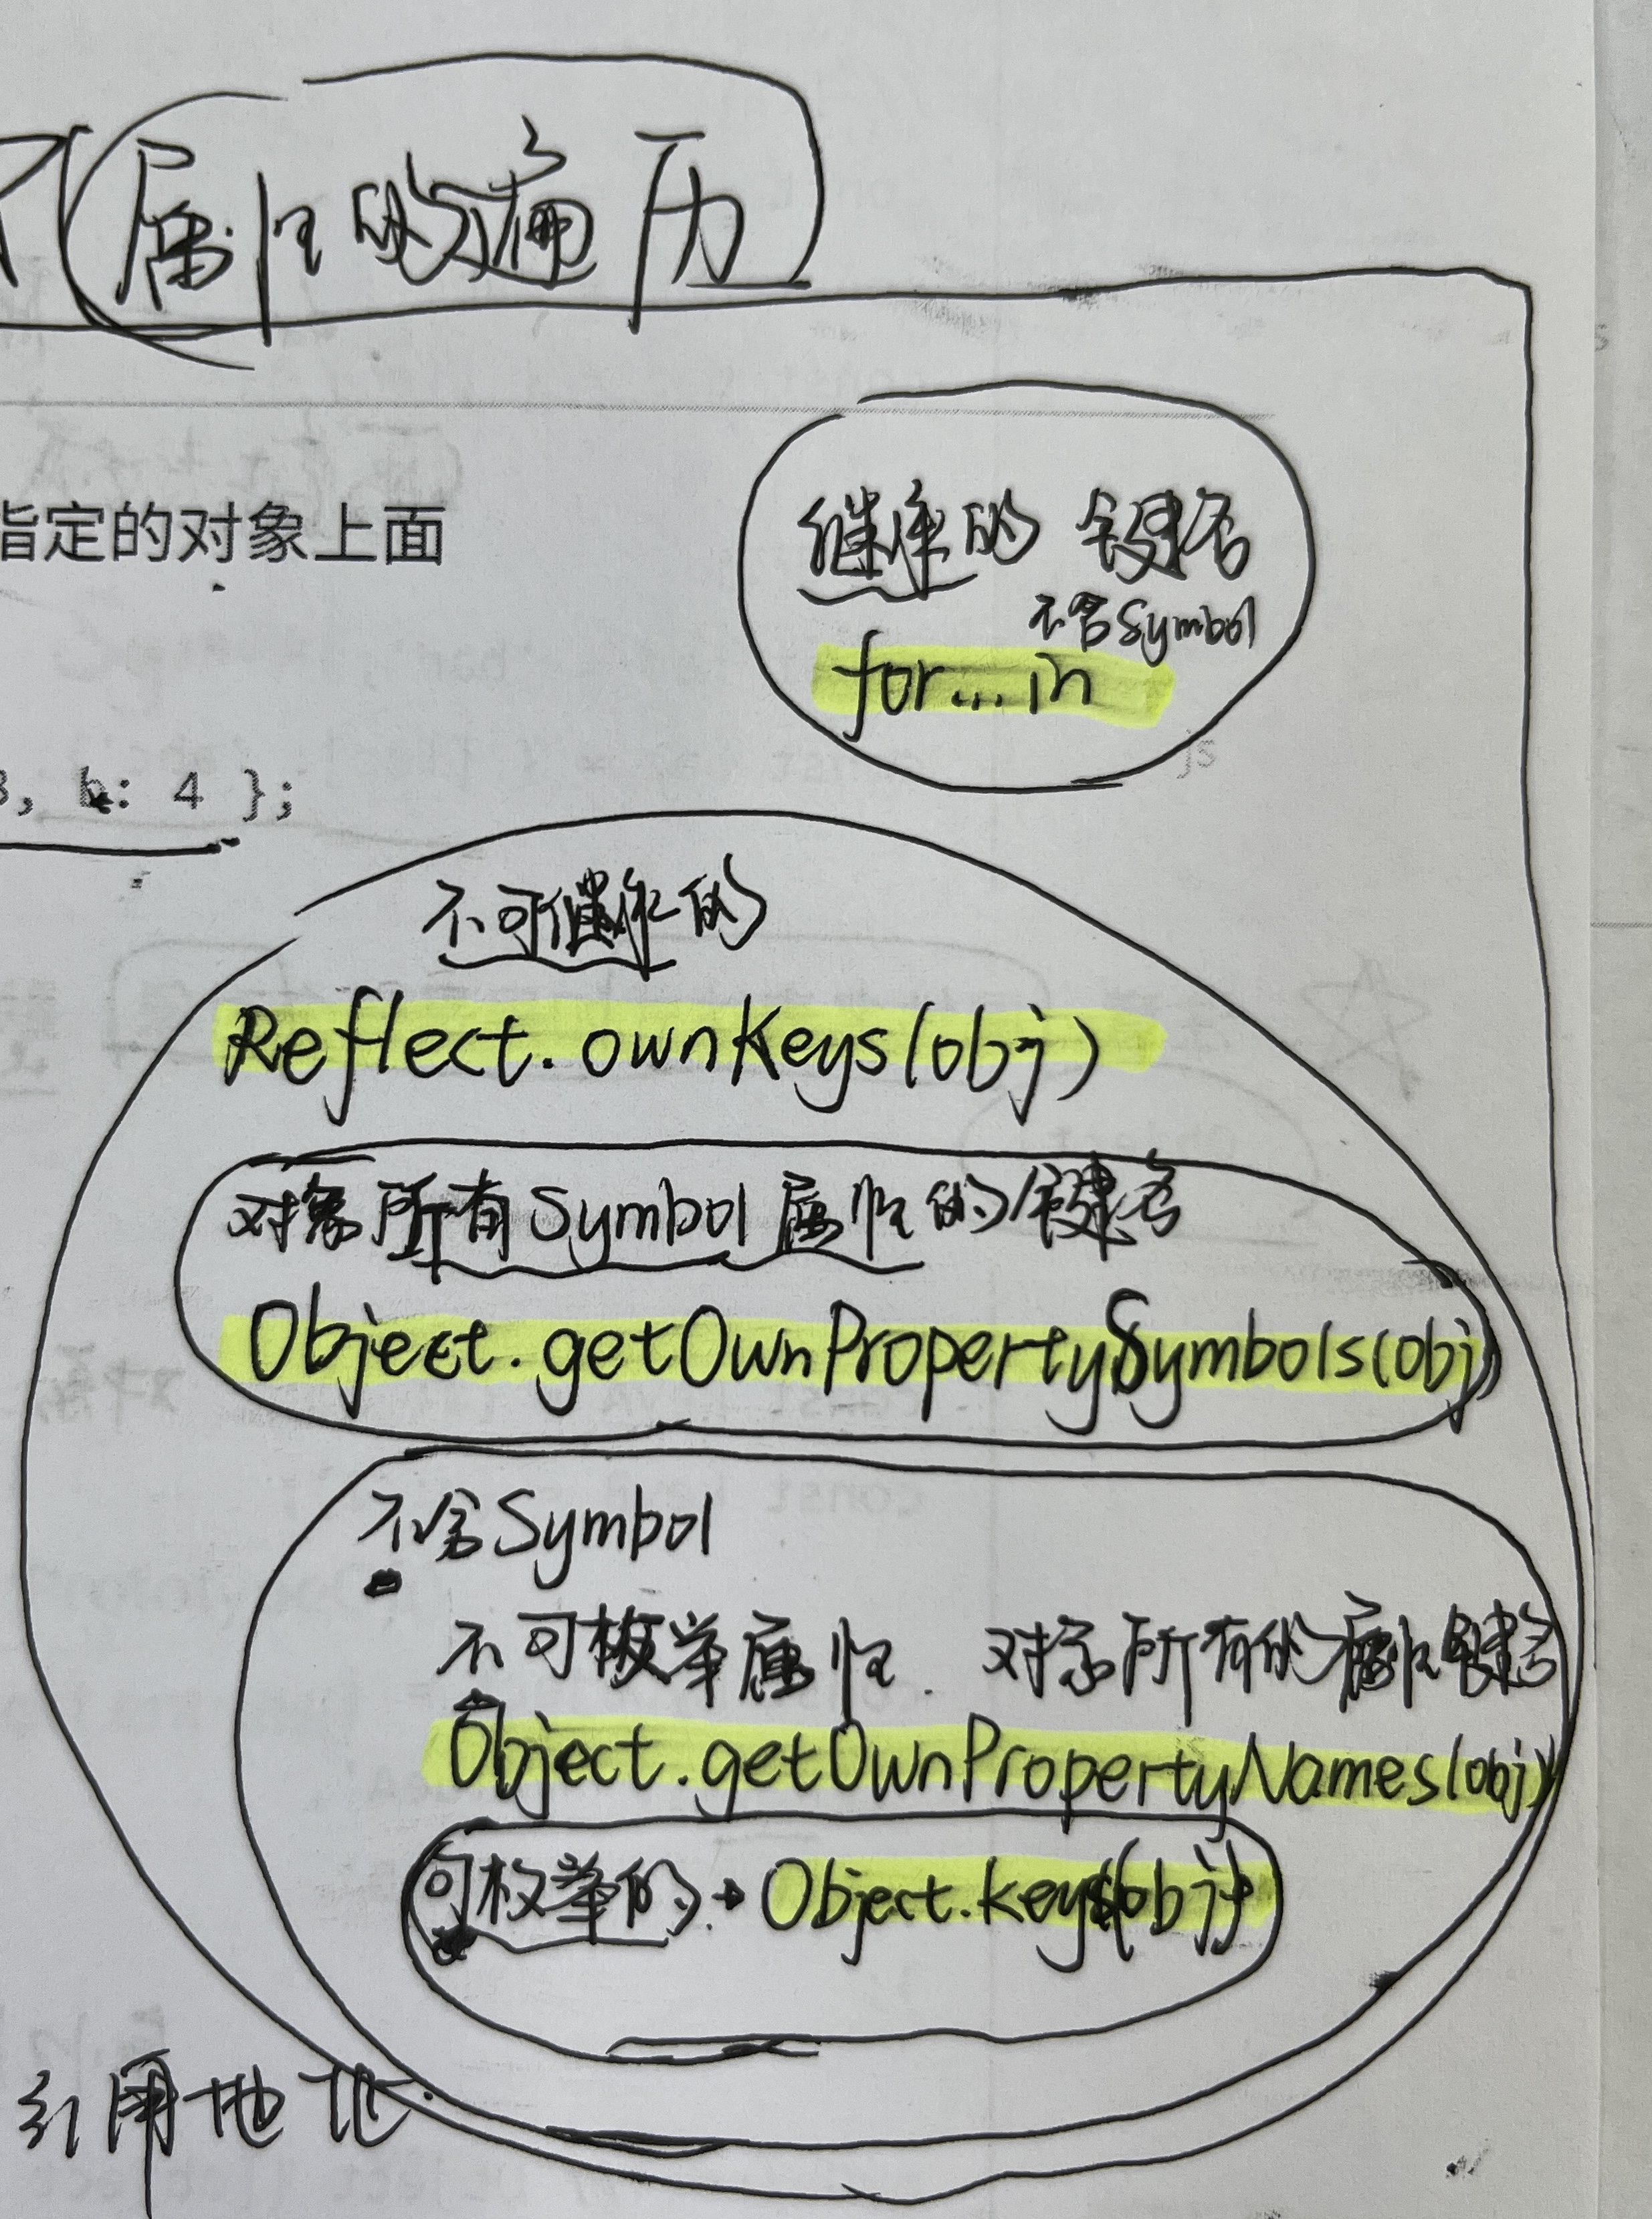 属性的遍历
指定的对象上面
继承的 键名
不含Symbol
for...in
js
3, b: 4 };
不可继承的
Reflect.ownKeys(obj)
对象所有Symbol属性的键名
Object.getOwnPropertySymbols(obj)
不含Symbol
不可枚举属性. 对象所有的属性键名
Object.getOwnPropertyNames(obj)
可枚举的. → Object.keys(obj)
引用地址.